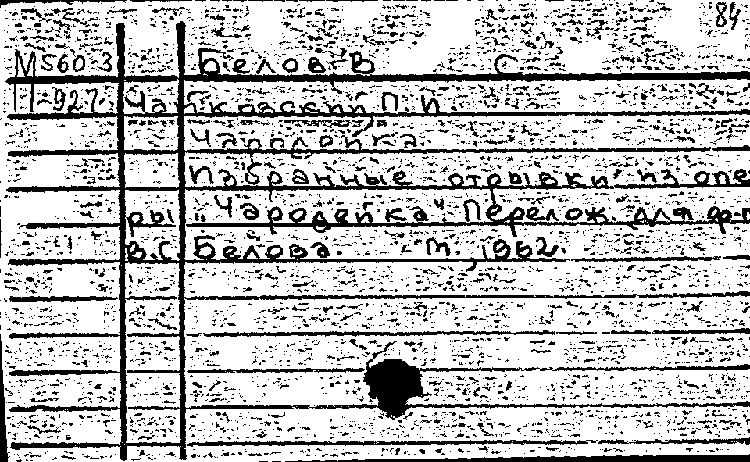 84
М560 3 Белов В С
Ч-927 Чайковский П. И.
Чародейка.
Избранные отрывки из опе
ры "Чародейка". Перелож. для ф-п
В.С. Белова. - М., 1962.